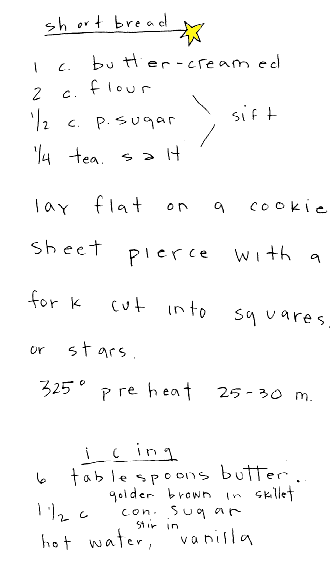 short bread
1 c. butter-creamed
2 c. flour
1/2 c. p. sugar
sift
1/4 tea. salt
lay flat on a cookie
sheet pierce with a
fork cut into squares,
or stars.
325° preheat 25-30 m.
icing
6 tablespoons butter..
golder brown in skillet
1 1/2 c con. sugar
stir in
hot water, vanilla